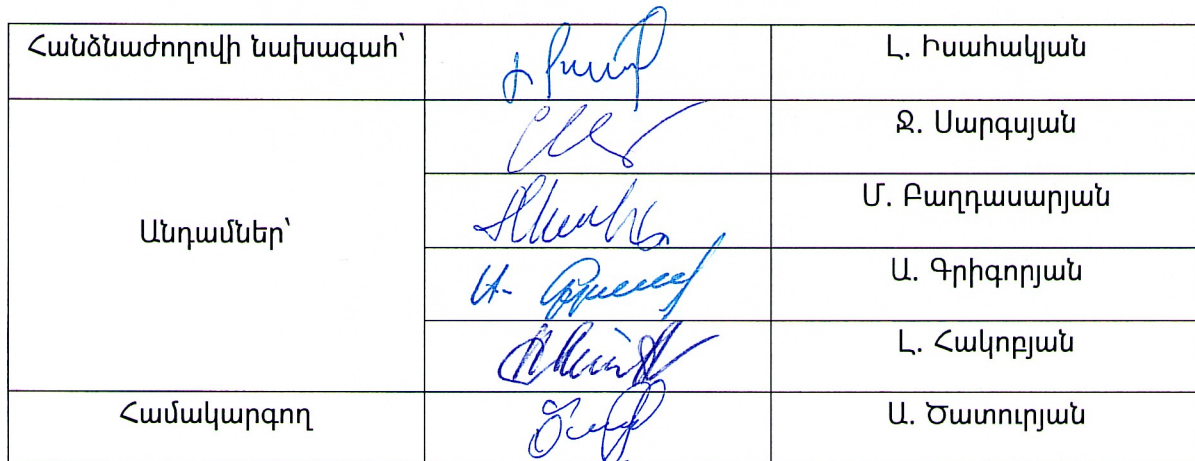 Հանձնաժողովի նախագահ՝ Լ. Իսահակյան
Ջ. Սարգսյան
Մ. Բաղդասարյան
Անդամներ՝
Ա. Գրիգորյան
Լ. Հակոբյան
Համակարգող Ա. Ծատուրյան